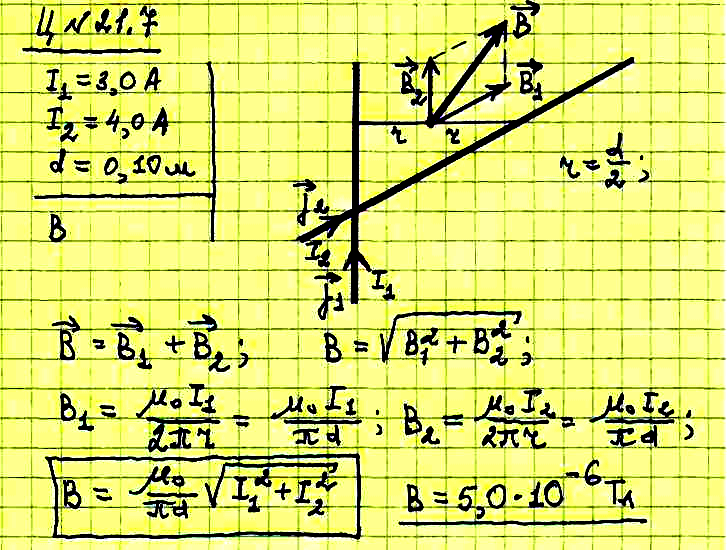 Ц № 21.7
I₁ = 3,0 A
I₂ = 4,0 A
d = 0,10 м
B
B⃗
B⃗₂
B⃗₁
r r
r = d/2;
j⃗₂
I₂
j⃗₁ I₁
B⃗ = B⃗₁ + B⃗₂; B = √(B₁² + B₂²);
B₁ = μ₀I₁/2πr = μ₀I₁/πd; B₂ = μ₀I₂/2πr = μ₀I₂/πd;
B = μ₀/πd √(I₁² + I₂²) B = 5,0·10⁻⁶ Тл